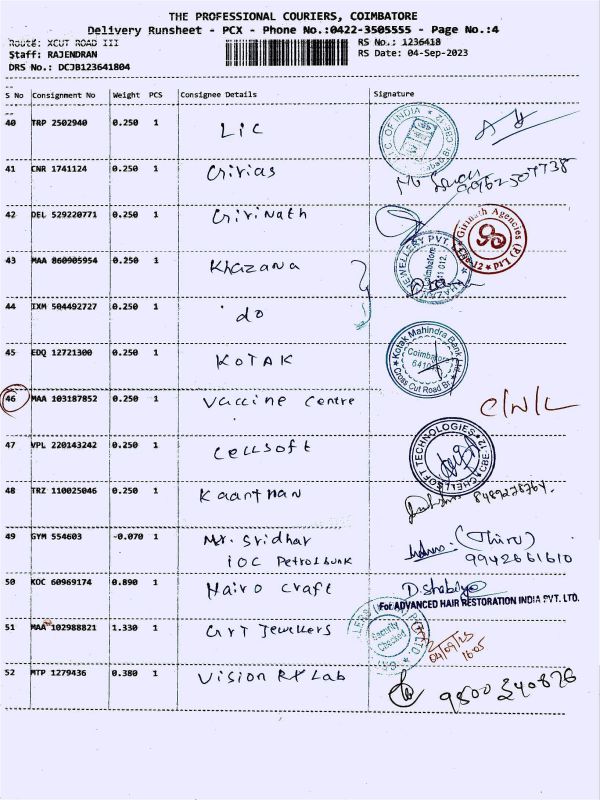 THE PROFESSIONAL COURIERS, COIMBATORE
Delivery Runsheet - PCX - Phone No.:0422-3505555 - Page No.:4
Route: XCUT ROAD III
RS No.: 1236418
Staff: RAJENDRAN
RS Date: 04-Sep-2023
DRS No.: DCJB123641804
S No Consignment No Weight PCS Consignee Details Signature
40 TRP 2502940 0.250 1 LIC
41 CNR 1741124 0.250 1 Girias 9962507738
42 DEL 529220771 0.250 1 Girinath Girinath Agencies (P) Ltd
43 MAA 860905954 0.250 1 Khazana
44 IXM 504492727 0.250 1 do
45 EDQ 12721300 0.250 1 KOTAK Kotak Mahindra Bank Coimbatore Cross Cut Road Br.
46 MAA 103187852 0.250 1 Vaccine Centre C/N/L
47 VPL 220143242 0.250 1 Cellsoft CHELLSOFT TECHNOLOGIES CBE-12
48 TRZ 110025046 0.250 1 Kaanthan
49 GYM 554603 -0.070 1 Mr. Sridhar (Thiru)
IOC Petrol bunk 9942661610
50 KOC 60969174 0.890 1 Hairo Craft D.Shabiya
For ADVANCED HAIR RESTORATION INDIA PVT. LTD.
51 MAA 102988821 1.330 1 GRT Jewellers Security Checked 04/09/23
16:05
52 MTP 1279436 0.380 1 Vision RX Lab 9500340826